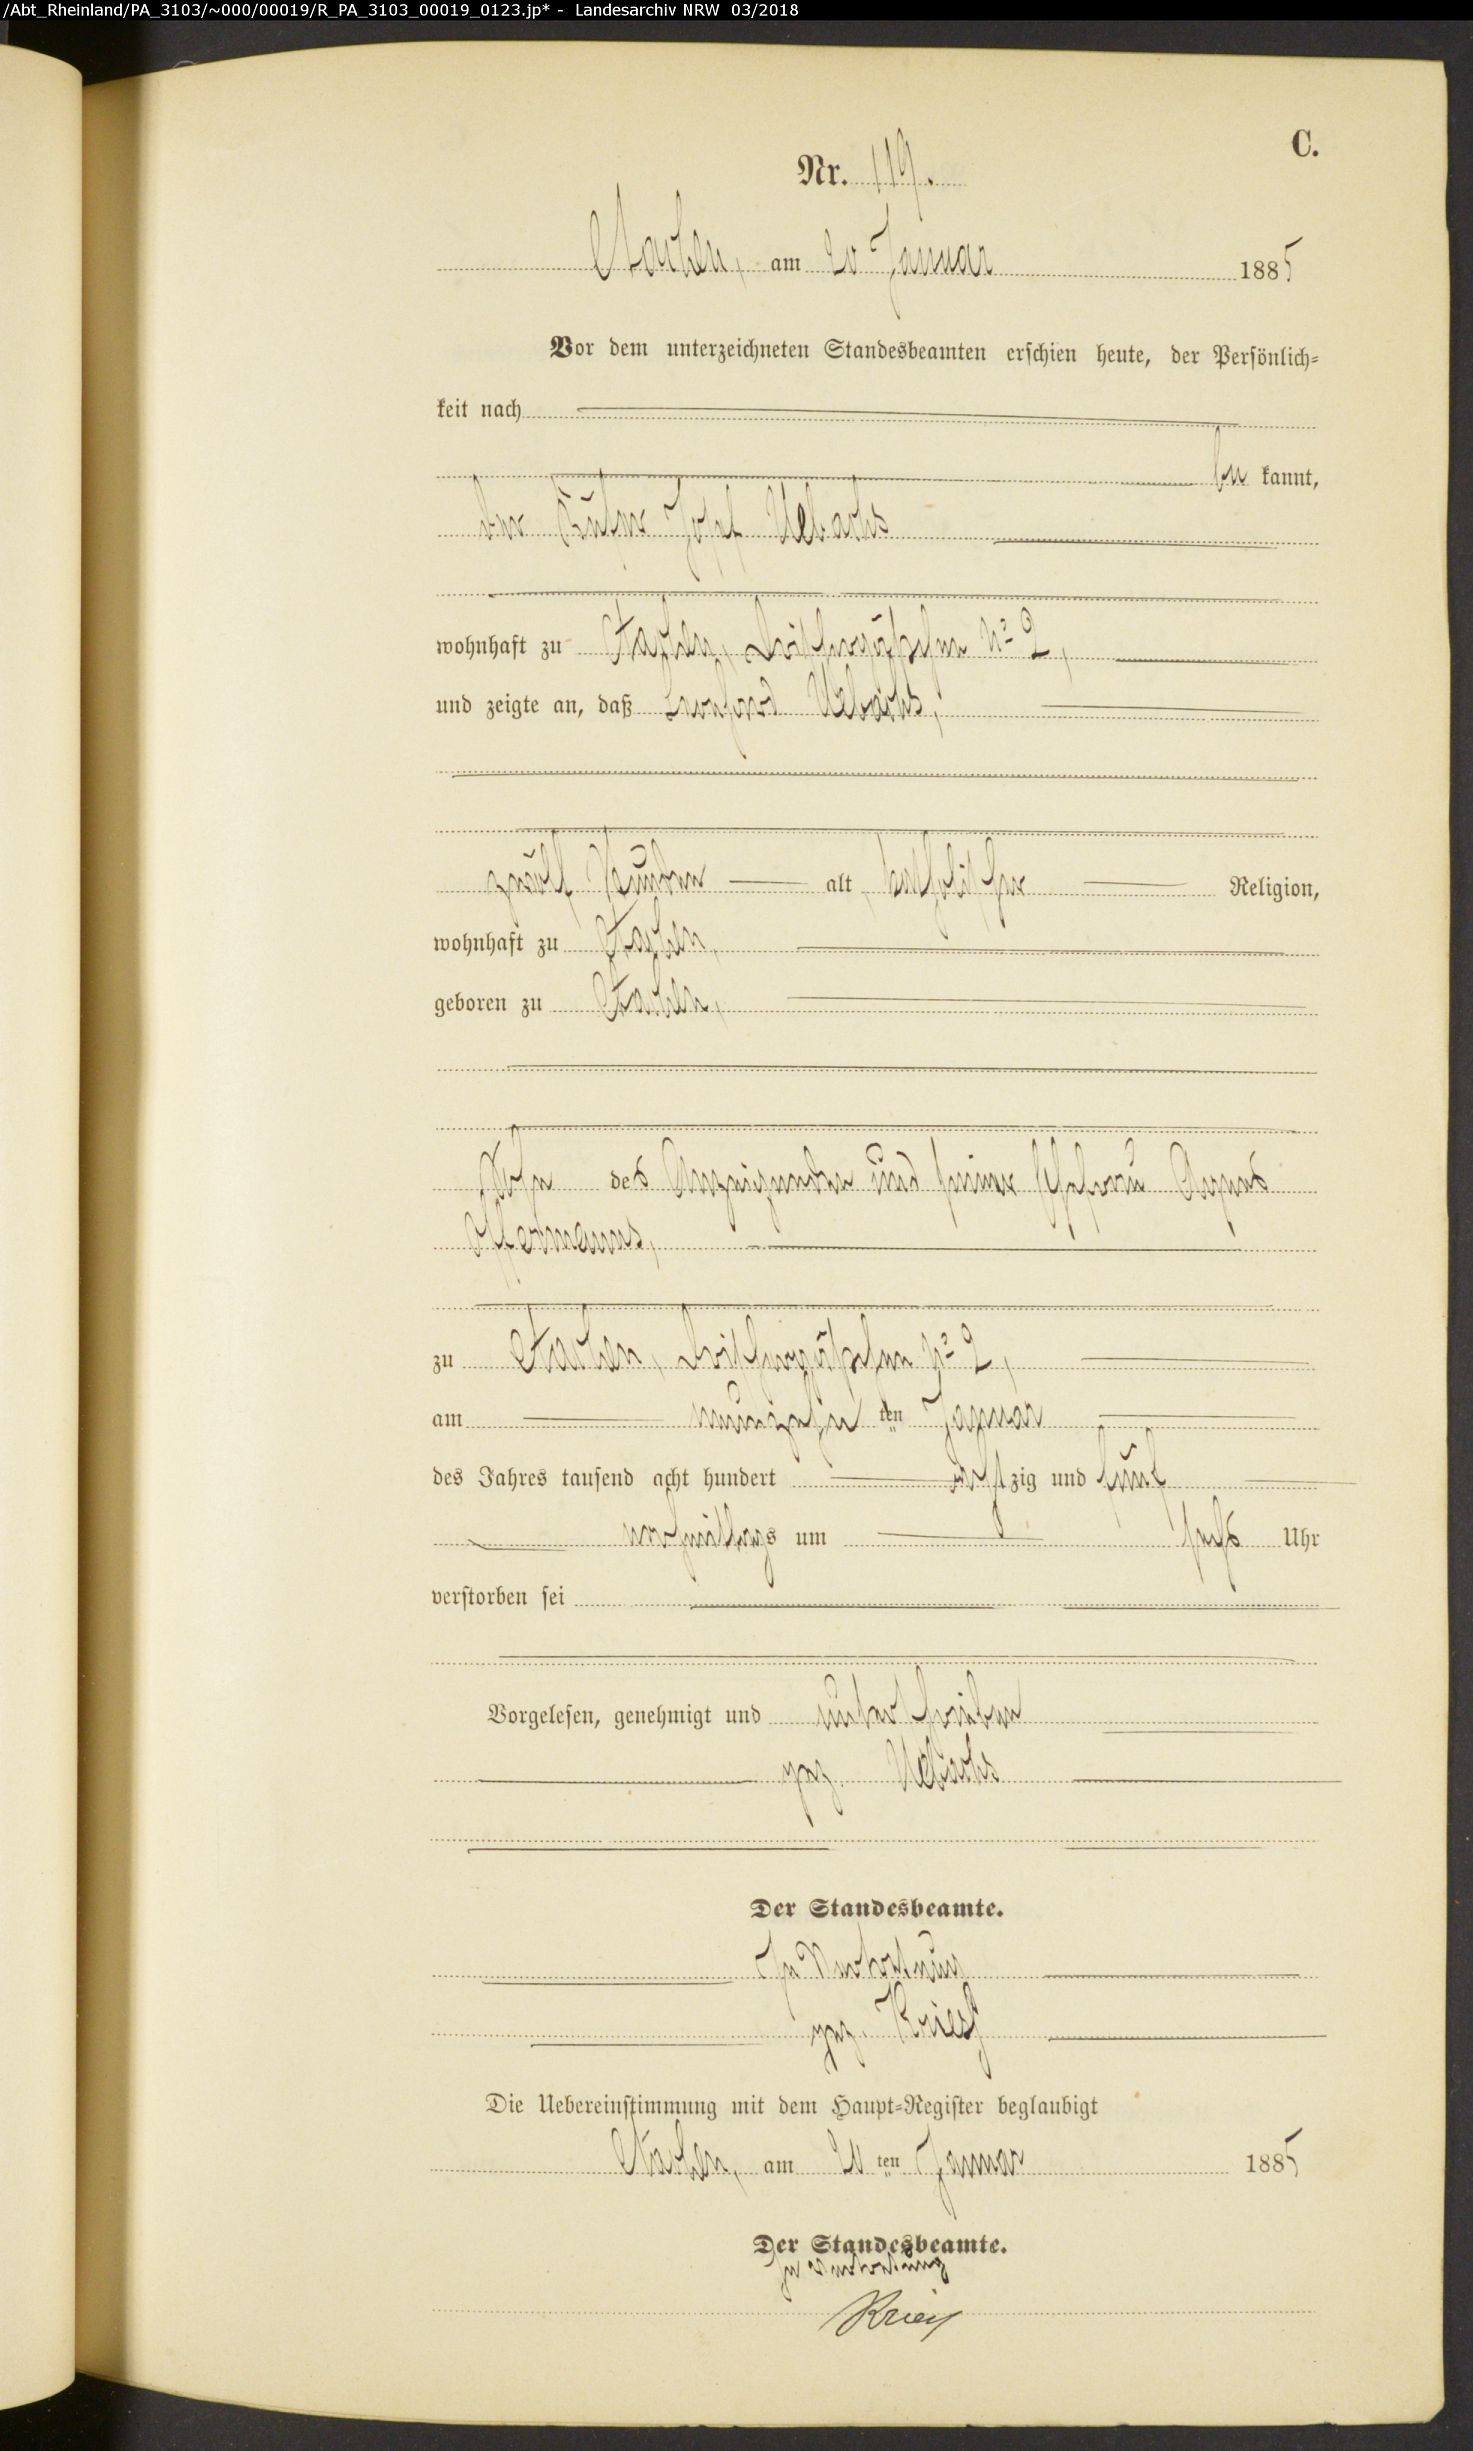 /Abt_Rheinland/PA_3103/~000/00019/R_PA_3103_00019_0123.jp* - Landesarchiv NRW 03/2018
C.
Nr. 119.
Aachen, am 20 Januar 1885
Vor dem unterzeichneten Standesbeamten erschien heute, der Persönlich=
keit nach
be kannt,
der Josef Uebachs
wohnhaft zu Aachen, No 2,
und zeigte an, daß Leonhard Uebachs,
zwölf Stunden alt, katholischer Religion,
wohnhaft zu Aachen,
geboren zu Aachen,
Sohn des Anzeigenden und seiner Ehefrau Agnes
Offermanns,
zu Aachen, No 2,
am neunzehn ten Januar
des Jahres tausend acht hundert acht zig und fünf
nachmittags um sechs Uhr
verstorben sei
Vorgelesen, genehmigt und unterschrieben
gez. Uebachs
Der Standesbeamte.
In Vertretung
gez. Kriesch
Die Uebereinstimmung mit dem Haupt=Register beglaubigt
Aachen, am 20 ten Januar 1885
Der Standesbeamte.
In Vertretung